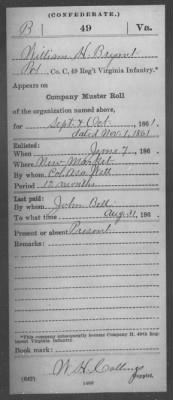 (CONFEDERATE.)
B 49 Va.
William H. Bryant
Pvt., Co. C, 49 Reg't Virginia Infantry.*
Appears on
Company Muster Roll
of the organization named above,
for Sept & Oct, 1861.
dated Nov. 1, 1861
Enlisted:
When June 7, 186 .
Where New Market
By whom Col.
Period 12 months
Last paid:
By whom John Bell
To what time Aug 31, 186 .
Present or absent Present
Remarks:
*This company subsequently became Company H, 49th Regiment Virginia Infantry.
Book mark:
W. H. Collings
(642) Copyist.